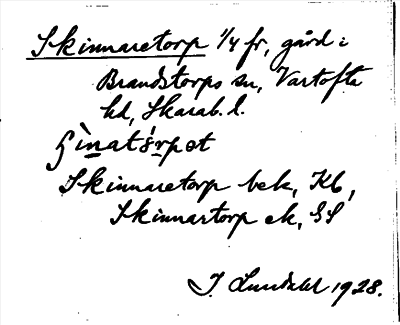 Skinnaretorp 1/4 fr, gård i
Brandstorps sn, Vartofta
hd, Skarab. l.
Skinnaretorp bek, Kb,
Skinnartorp ek, GS
I. Lundahl 1928.